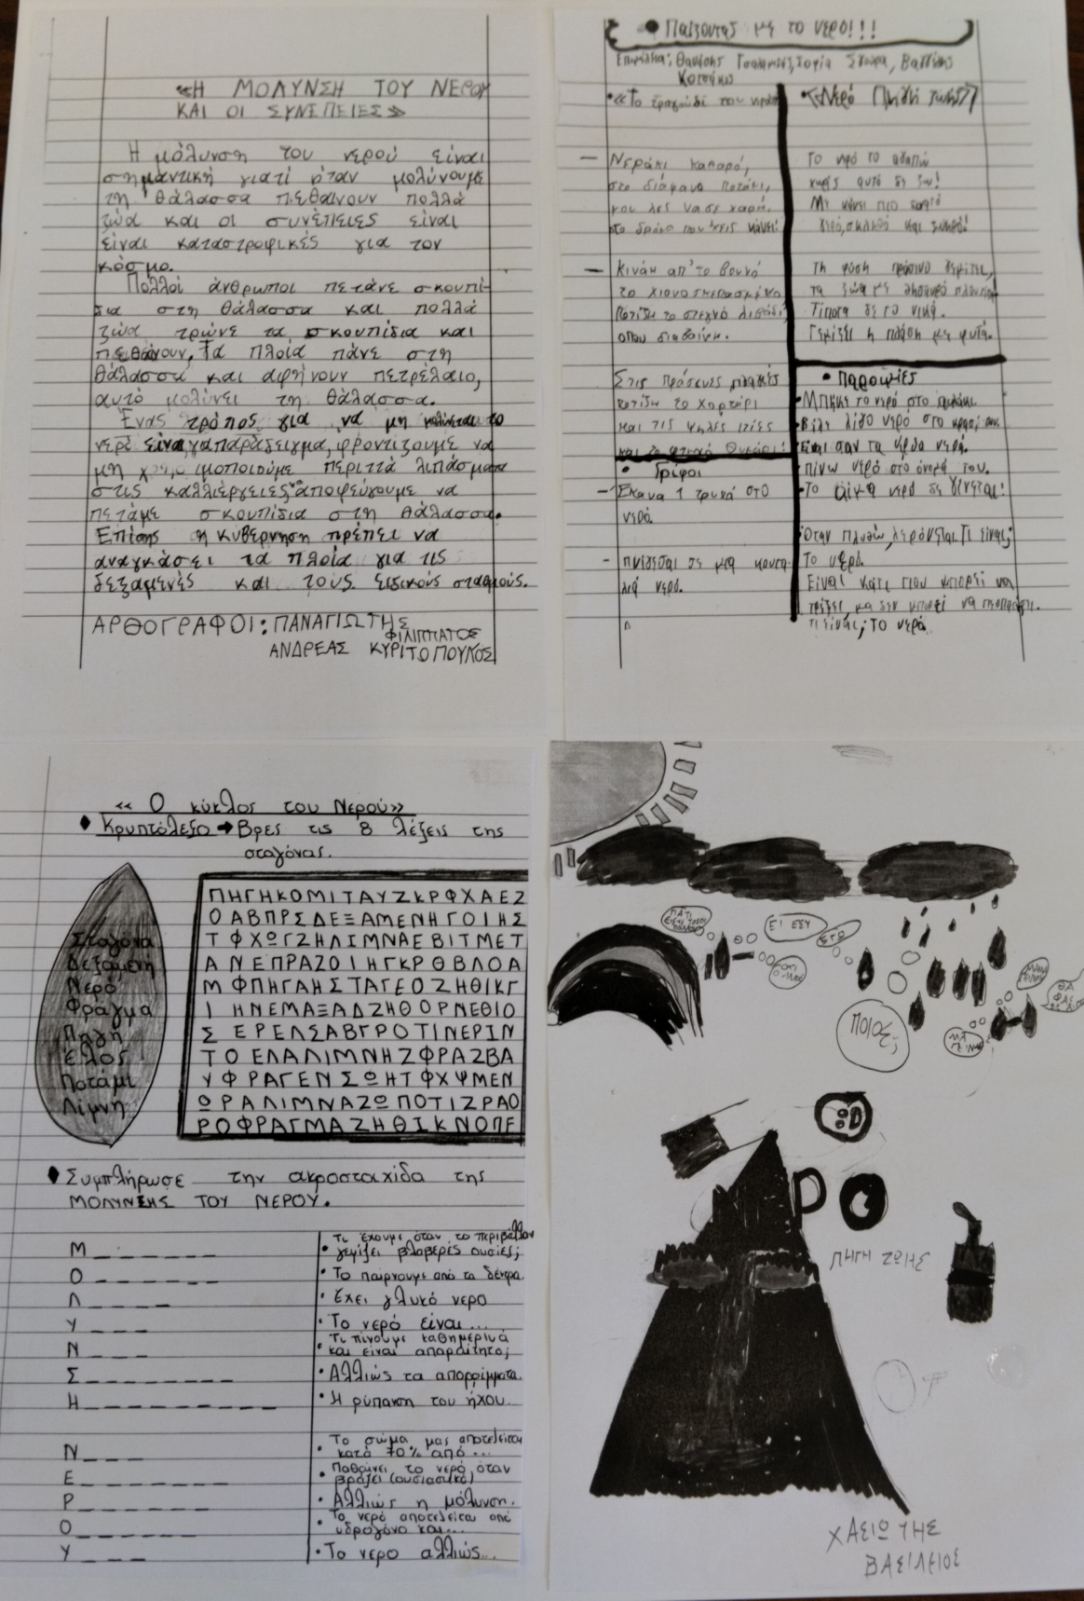 «Η ΜΟΛΥΝΣΗ ΤΟΥ ΝΕΡΟΥ
ΚΑΙ ΟΙ ΣΥΝΕΠΕΙΕΣ»
Η μόλυνση του νερού είναι
σημαντική γιατί όταν μολύνουμε
τη θάλασσα πεθαίνουν πολλά
ζώα και οι συνέπειες είναι
είναι καταστροφικές για τον
κόσμο.
Πολλοί άνθρωποι πετάνε σκουπί-
δια στη θάλασσα και πολλά
ζώα τρώνε τα σκουπίδια και
πεθαίνουν, Τα πλοία πάνε στη
θάλασσα και αφήνουν πετρέλαιο,
αυτό μολύνει τη θάλασσα.
Ένας τρόπος για να μη μολύνεται το
νερό είναι, για παράδειγμα, φροντίζουμε να
μη χρησιμοποιούμε περιττά λιπάσματα
στις καλλιέργειες αποφεύγουμε να
πετάμε σκουπίδια στη θάλασσα.
Επίσης η κυβέρνηση πρέπει να
αναγκάσει τα πλοία για τις
δεξαμενές και τους ειδικούς σταθμούς.
ΑΡΘΟΓΡΑΦΟΙ: ΠΑΝΑΓΙΩΤΗΣ
ΦΙΛΙΠΠΑΤΟΣ
ΑΝΔΡΕΑΣ ΚΥΡΙΤΟΠΟΥΛΟΣ
• Παίζοντας με το νερό!!!
Επιμέλεια: Θανάσης Σοφία Βασίλης
• «Το τραγούδι του νερού»
– Νεράκι καθαρό,
στο διάφανο ποτάμι,
που λες να σε χαρή
το δρόμο που 'χεις κάνει!
– Κινάω απ' το βουνό
το χιονοσκεπασμένο
ποτίζω το στεγνό λιβάδι
οπου διαβαίνω.
Στις πράσινες πλαγιές
ποτίζω το χορτάρι
και τις ψηλές ιτιές
και το φτωχό θυμάρι!
• Γρίφοι
– Έκανα 1 τρυπά στο
νερό.
– πνίγεται σε μια κουτα-
λιά νερό.
«Νερό Πηγή ζωής»
Το νερό το αγαπώ
χωρίς αυτό δε ζω!
Με κάνει πιο καλό
γερό, και
Τη φύση πράσινο γεμίζει,
τα ζώα με
Τίποτα δε το νικά.
Γεμίζει η πλάση με φυτά.
• Παροιμίες
• Μπήκε το νερό στο αυλάκι.
• Βάλε λίγο νερό στο κρασί σου.
Είναι σαν τα κρύα νερά.
πίνω νερό στο όνομά του.
• Το αίμα νερό δε γίνεται!
Όταν πλυθώ, λερώνεται. Τι είναι;
Το νερό.
Είναι κάτι που μπορεί να
τρέξει, μα δεν μπορεί να περπατήσει.
Τι είναι; Το νερό
«Ο κύκλος του Νερού»
♦ Κρυπτόλεξο → Βρες τις 8 λέξεις της
σταγόνας.
Σταγόνα
Δεξαμενή
Νερό
Φράγμα
Πηγή
Έλος
Ποτάμι
Λίμνη
ΠΗΓΗΚΟΜΙΤΑΥΖΚΡΦΧΑΕΖ
ΟΑΒΠΡΣΔΕΞΑΜΕΝΗΓΟΙΗΣ
ΤΦΧΩΓΖΗΛΙΜΝΑΕΒΙΤΜΕΤ
ΑΝΕΠΡΑΖΟΙΗΓΚΡΘΒΛΟΑ
ΜΦΠΗΓΑΗΣΤΑΓΕΟΖΗΘΙΚΓ
ΙΗΝΕΜΑΞΑΔΖΗΘΟΡΝΕΘΙΟ
ΣΕΡΕΛΣΑΒΓΡΟΤΙΝΕΡΙΝ
ΤΟΕΛΑΛΙΜΝΗΖΦΡΑΖΒΑ
ΥΦΡΑΓΕΝΣΩΗΤΦΧΨΜΕΝ
ΩΡΑΛΙΜΝΑΖΩΠΟΤΙΖΡΑΟ
ΡΟΦΡΑΓΜΑΖΗΘΙΚΝΟΠΕ
♦ Συμπλήρωσε την ακροστοιχίδα της
ΜΟΛΥΝΣΗΣ ΤΟΥ ΝΕΡΟΥ.
Μ_ _ _ _ _ _ _ • Τι έχουμε όταν το περιβάλλον
γεμίζει βλαβερές ουσίες;
Ο_ _ _ _ _ _ _ • Το παίρνουμε από τα δέντρα
Λ_ _ _ _ • Έχει γλυκό νερο
Υ_ _ _ _ • Το νερό είναι...
Ν_ _ _ • Τι πίνουμε καθημερινά
και είναι απαραίτητο;
Σ_ _ _ _ _ _ _ _ • Αλλιώς τα απορρίμματα.
Η_ _ _ _ _ _ _ _ _ _ • Η ρύπανση του ήχου.
Ν_ _ _ • Το σώμα μας αποτελείται
κατά 70% από...
Ε_ _ _ _ _ _ _ • Παθαίνει το νερό όταν
βράζει (ουσιαστικό)
Ρ_ _ _ _ _ _ • Αλλιώς η μόλυνση.
Ο_ _ _ _ _ _ • Το νερό αποτελείται από
υδρογόνο και...
Υ_ _ _ • Το νερο αλλιώς...
ΓΙΑΤΙ
ΕΙ ΕΣΥ
ΕΓΩ
ΠΟΙΟΣ;
ΘΑ
ΝΑ
ΠΗΓΗ ΖΩΗΣ
ΧΑΣΙΩΤΗΣ
ΒΑΣΙΛΕΙΟΣ